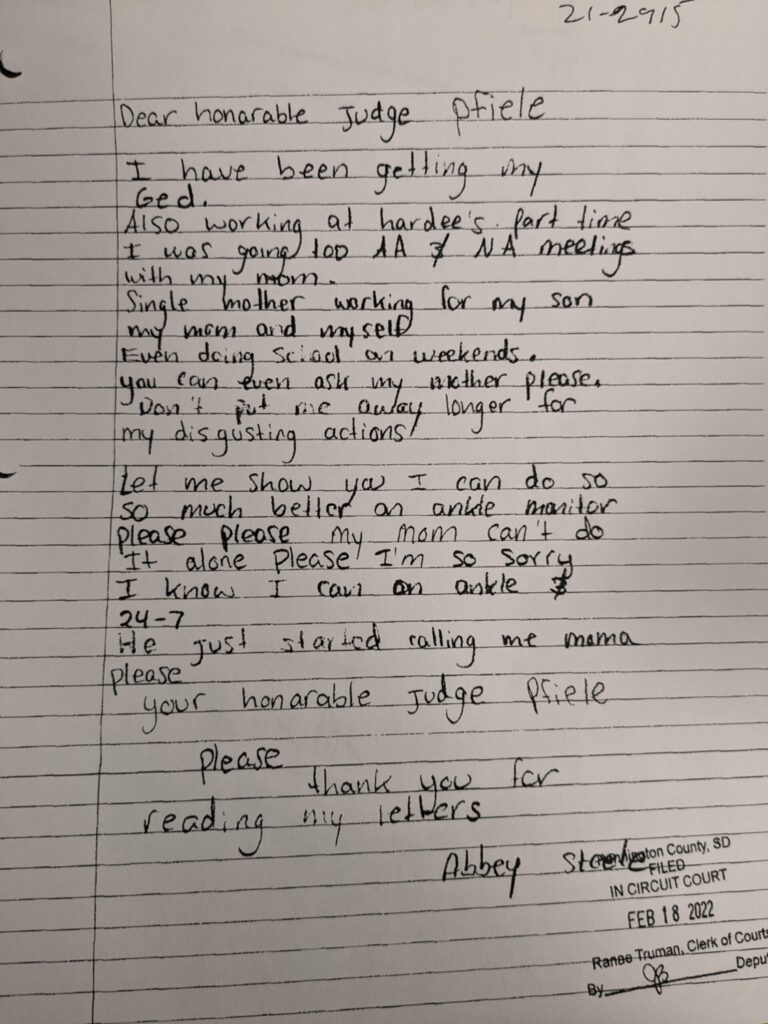 21-2915
Dear honarable Judge Pfiele
I have been getting my
Ged.
Also working at hardee's part time
I was going too AA & NA meetings
with my mom.
Single mother working for my son
my mom and myself
Even doing School on weekends.
you can even ask my mother please.
Don't put me away longer for
my disgusting actions
Let me show you I can do so
so much better on ankle monitor
please please my mom can't do
It alone please I'm so sorry
I know I can on ankle &
24-7
He just started calling me mama
please
your honarable Judge Pfiele
please
thank you for
reading my letters
Abbey Steele
Pennington County, SD
FILED
IN CIRCUIT COURT
FEB 18 2022
Ranae Truman, Clerk of Courts
By Deput